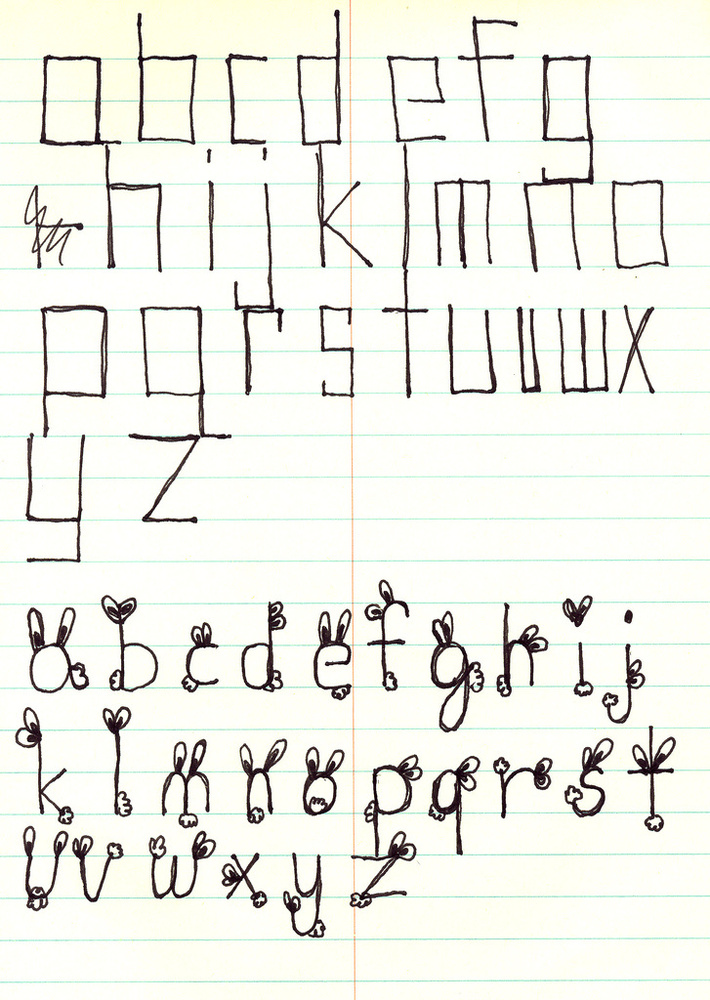 a b c d e f g
h i j k l m n o
p q r s t u v w x
y z
a b c d e f g h i j
k l m n o p q r s t
u v w x y z